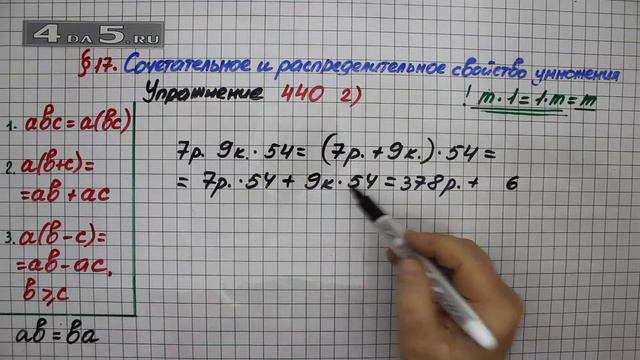 4DA5.RU
§17. Сочетательное и распределительное свойство умножения
Упражнение 440 2)
! m·1=1·m=m
1. abc=a(bc)
2. a(b+c)=
=ab+ac
3. a(b-c)=
=ab-ac,
b⩾c
ab=ba
7р. 9к.·54=(7р.+9к.)·54=
=7р.·54+9к·54=378р.+ 6